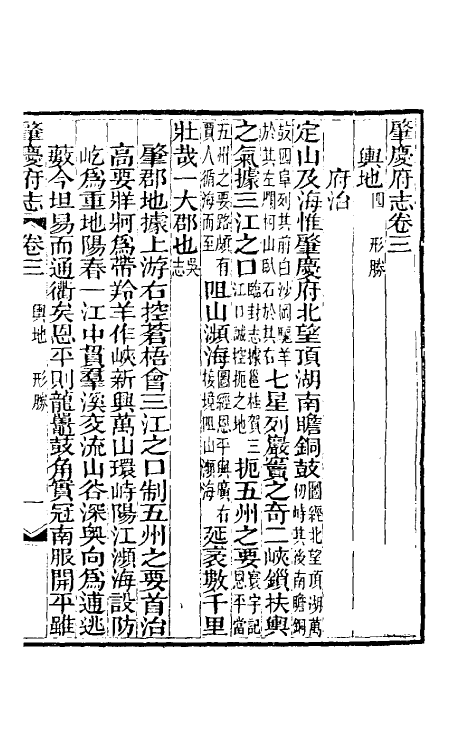 肇慶府志卷三
輿地四 形勝
府治
定山及海惟肇慶府北望頂湖南瞻銅鼓圖經北望頂湖萬仞峙其後南瞻銅
鼓四阜列其前白沙岡騣羊於其左爛柯山臥石於其右七星列巖竇之奇二峽鎖扶輿
之氣據三江之口臨封志據邕桂賀三江口誠控扼之地扼五州之要寰宇記恩平當
五州之要路頗有賈人循海而至阻山瀕海圖經恩平與廣右接境阻山瀕海延袤數千里
壯哉一大郡也吳志
肇郡地據上游右控蒼梧會三江之口制五州之要首治
高要牂牁為帶羚羊作峽新興萬山環峙陽江瀕海設防
屹為重地陽春一江中貫羣溪交流山谷深奧向為逋逃
藪今坦易而通衢矣恩平則龍鼉鼓角實冠南服開平雖
肇慶府志 卷三 輿地 形勝 一